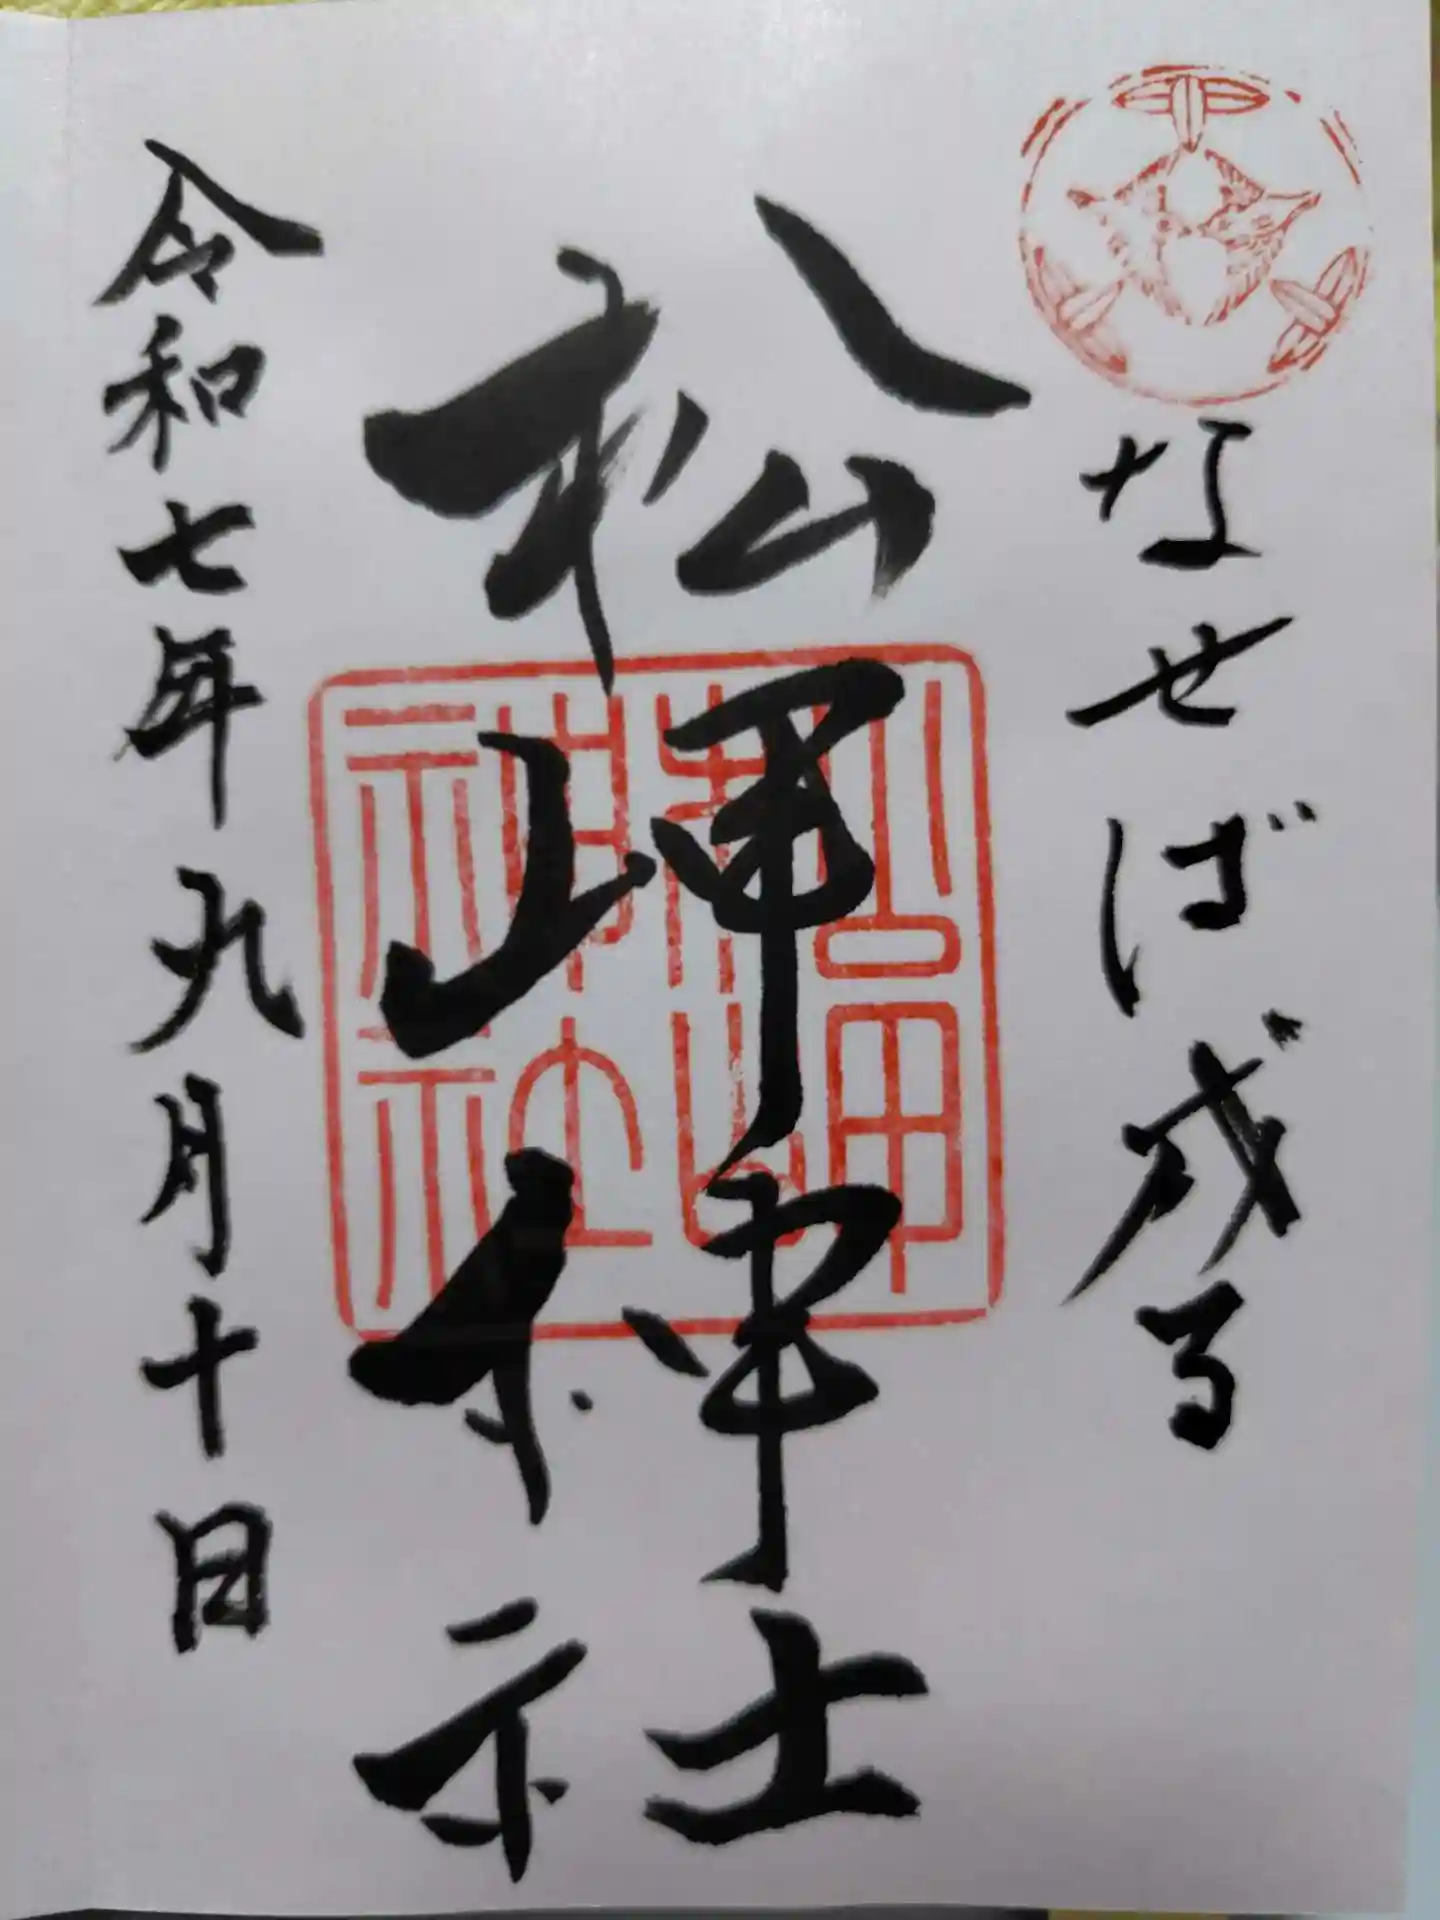 なせば成る
松岬神社
松岬神社
令和七年九月十日